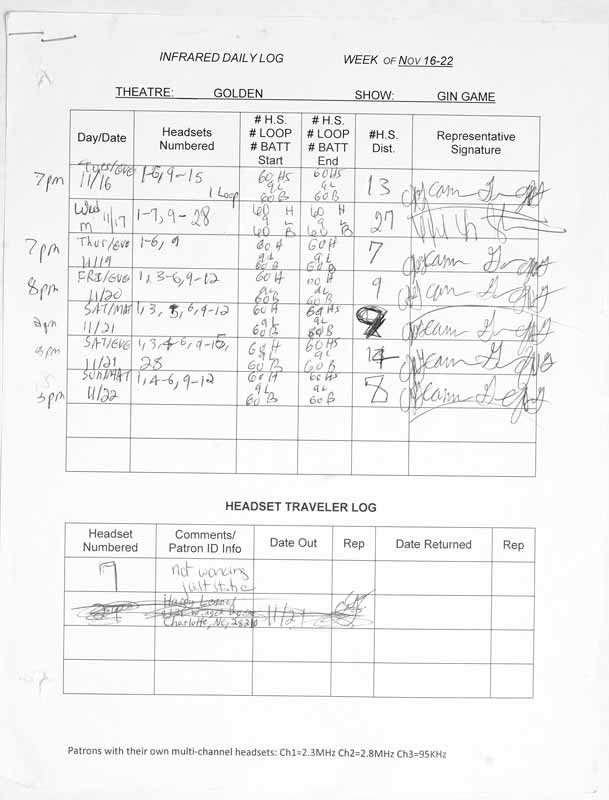 INFRARED DAILY LOG WEEK OF NOV 16-22
THEATRE: GOLDEN SHOW: GIN GAME
Day/Date Headsets Numbered # H.S. # LOOP # BATT Start # H.S. # LOOP # BATT End #H.S. Dist. Representative Signature
7pm Tues/EVE 11/16 1-6, 9-15 1 Loop 60 HS 9L 60B 60HS 9L 60B 13
Wed M 11/17 1-7, 9-28 60 H L 60 B 60 H L 60 B 27
7pm Thur/EVE 11/19 1-6, 9 60H 9L 60B 60H 9L 60B 7
8pm FRI/EVE 11/20 1, 3-6, 9-12 60H 9L 60B 60H 9L 60B 9
2pm SAT/MAT 11/21 1, 3, 6, 9-12 60H 9L 60B 60HS 9L 60B 9
8pm SAT/EVE 11/21 1, 3, 6, 9-15, 28 60H 9L 60B 60H 9L 60B 14
3pm SUN/MAT 11/22 1, 4-6, 9-12 60H 9L 60B 60HS 9L 60B 8
HEADSET TRAVELER LOG
Headset Numbered Comments/ Patron ID Info Date Out Rep Date Returned Rep
7 not working just static
Charlotte, NC, 28210 11/21
Patrons with their own multi-channel headsets: Ch1=2.3MHz Ch2=2.8MHz Ch3=95KHz